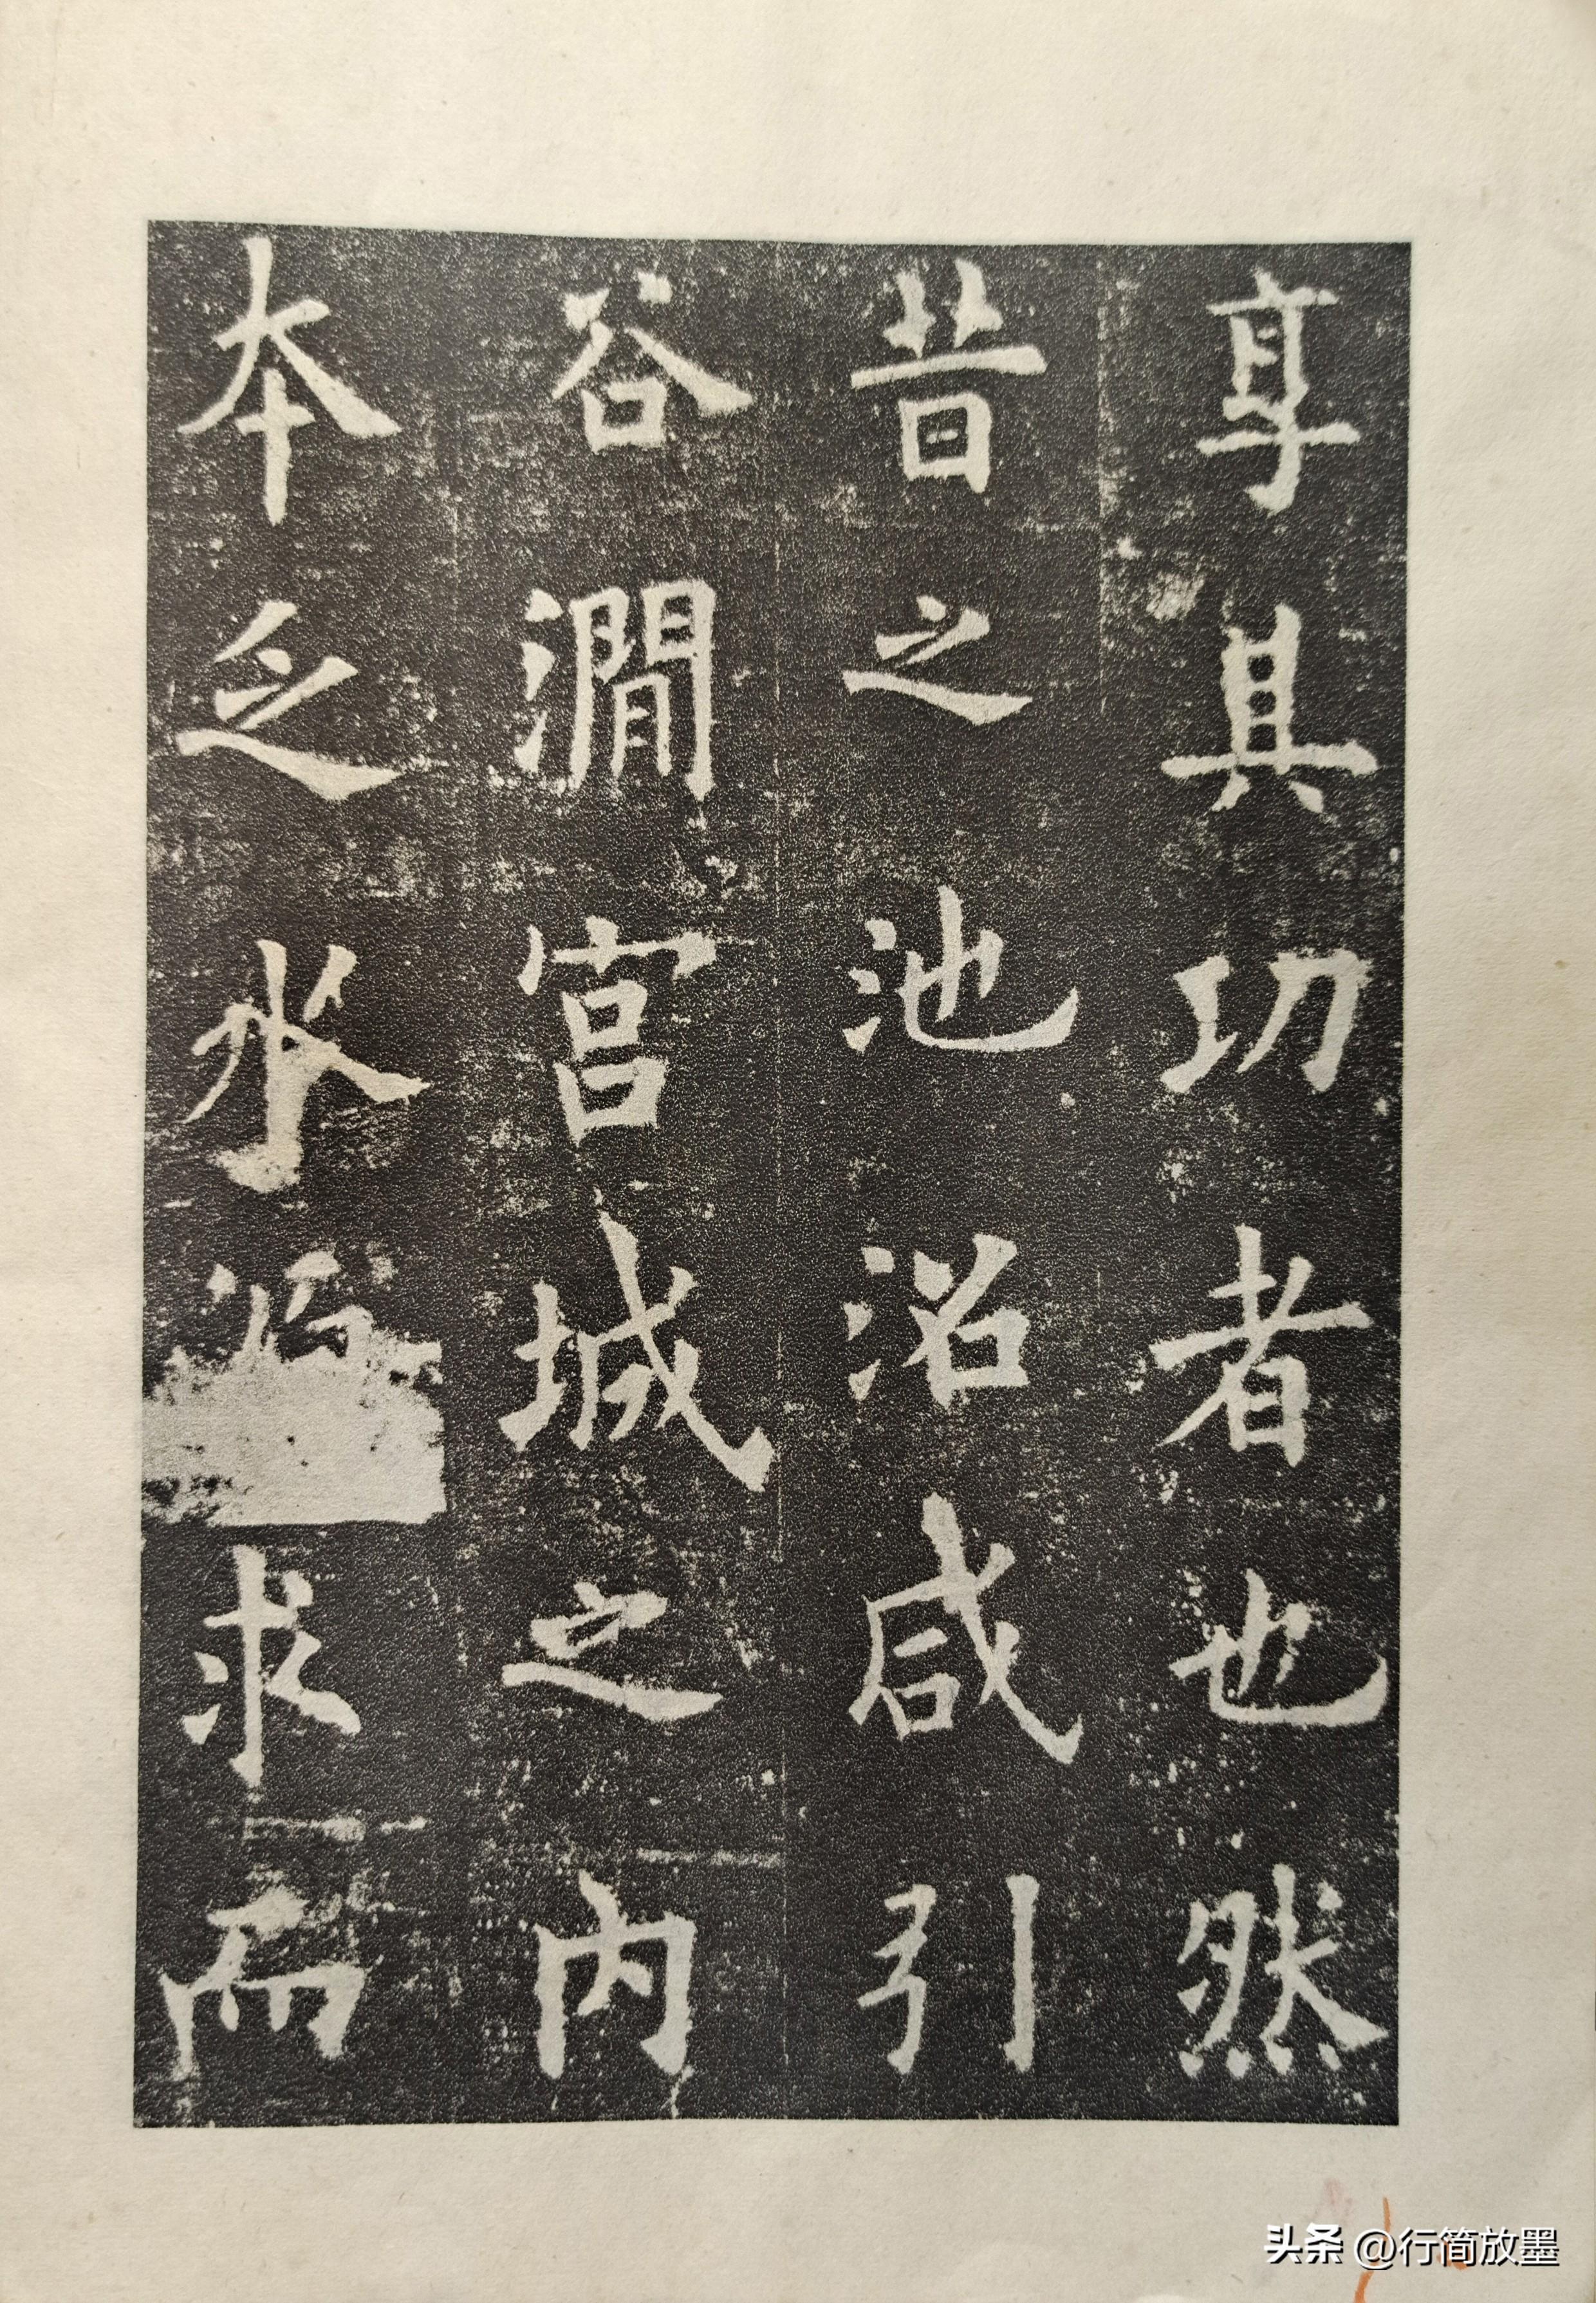 享其功者也然
昔之池沼咸引
谷澗宮城之內
本乏水求而
头条 @行简放墨